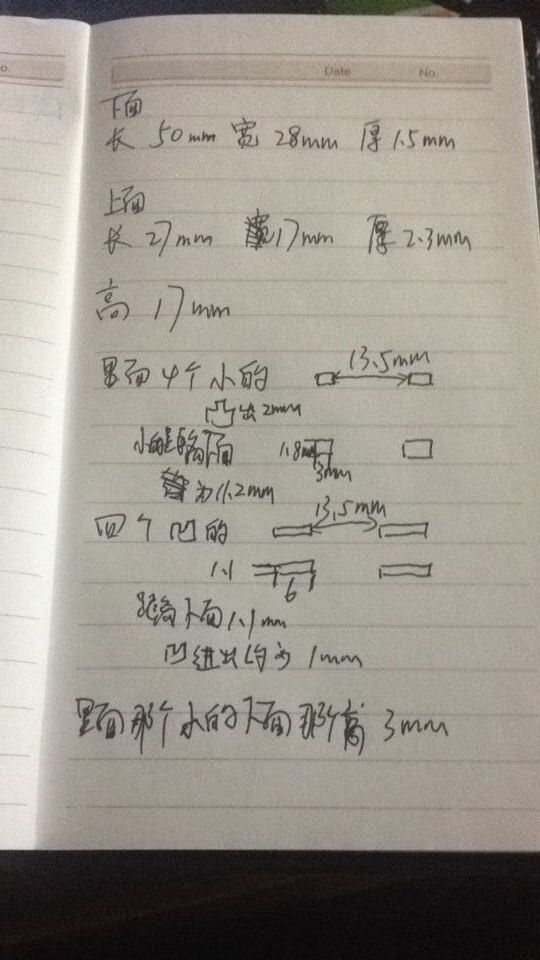 o.
Date No.
下面
长 50mm 宽 28mm 厚 1.5mm
上面
长 27mm 17mm 厚 2.3mm
高 17mm
里面 4个 小的 13.5mm
凸出 2mm
小的 下面 1.8mm
3mm
为 11.2mm
四个 凹的 13.5mm
1.1
6
距离下面 1.1mm
凹进出约为 1mm
里面那个小的下面那个高 3mm